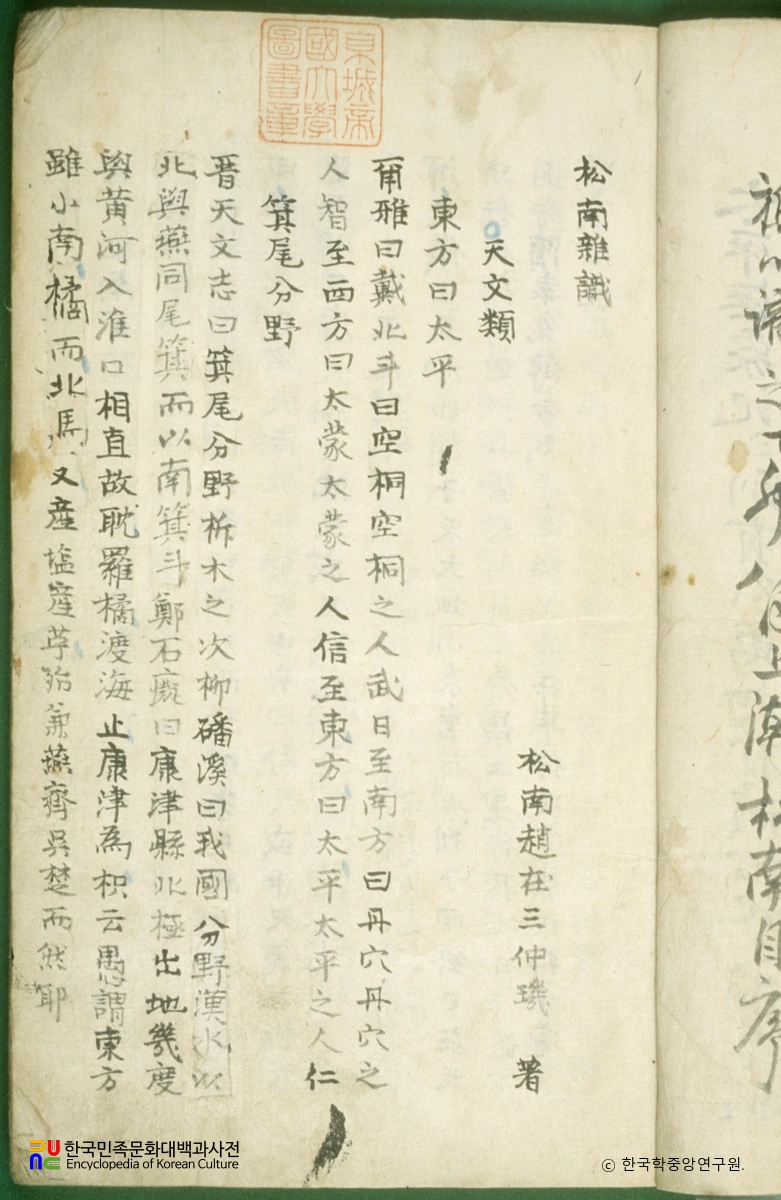 松南雜識
松南趙在三仲璣 著
天文類
東方曰太平
爾雅曰戴北斗曰空桐空桐之人武日至南方曰丹穴丹穴之
人智至西方曰太蒙太蒙之人信至東方曰太平太平之人仁
箕尾分野
晋天文志曰箕尾分野析木之次柳磻溪曰我國分野漢水以
北與燕同尾箕而以南箕斗鄭石癡曰康津縣北極出地幾度
與黄河入淮口相直故耽羅橘渡海止康津為枳云愚謂東方
雖小南橘而北馬又産塩産苧殆兼燕齊吳楚而然耶
京城帝
國大學
圖書章
之
上
南自序
한국민족문화대백과사전
Encyclopedia of Korean Culture
ⓒ 한국학중앙연구원.